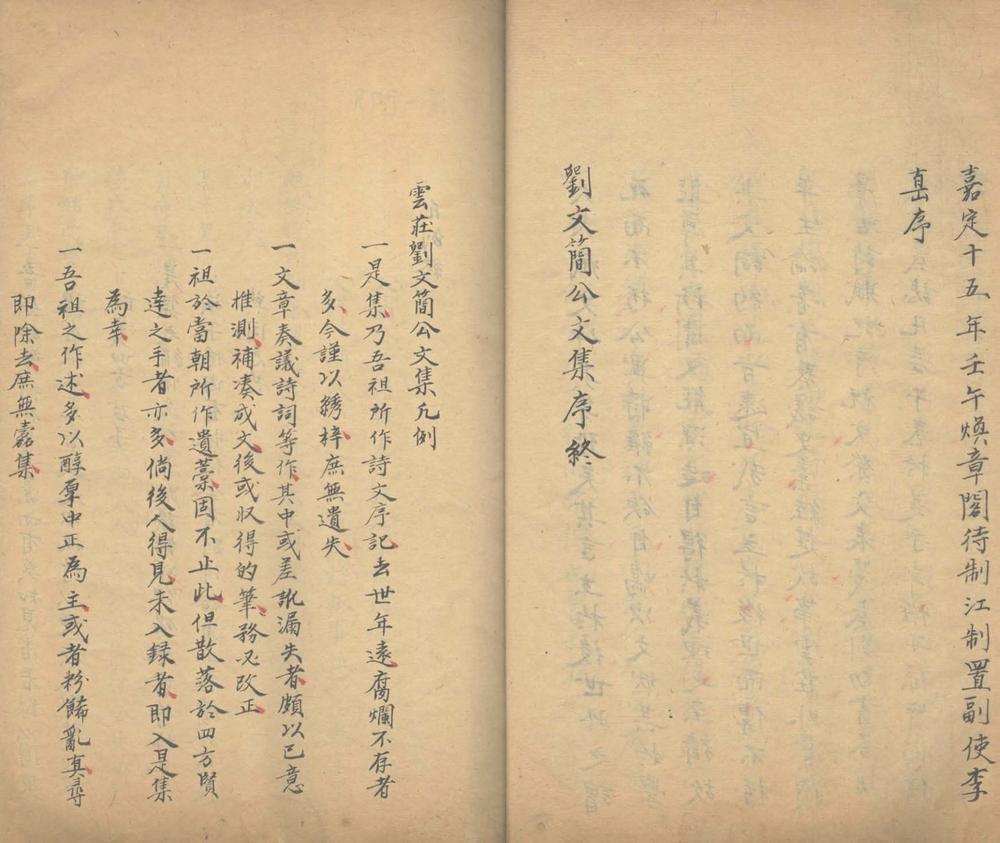 嘉定十五年壬午煥章閣待制江制置副使李
𡴭序
劉文簡公文集序終
雲莊劉文簡公文集凡例
一是集乃吾祖所作詩文序記去世年遠腐爛不存者
多今謹以綉梓庶無遺失
一文章奏議詩詞等作其中或差訛漏失者頗以已意
推測補凑成文後或収得的筆務必改正
一祖於當朝所作遺藁固不止此但散落於四方賢
達之手者亦多倘後人得見未入録者即入是集
為幸
一吾祖之作述多以醇厚中正為主或者粉餙亂真尋
即除去庶無靐集